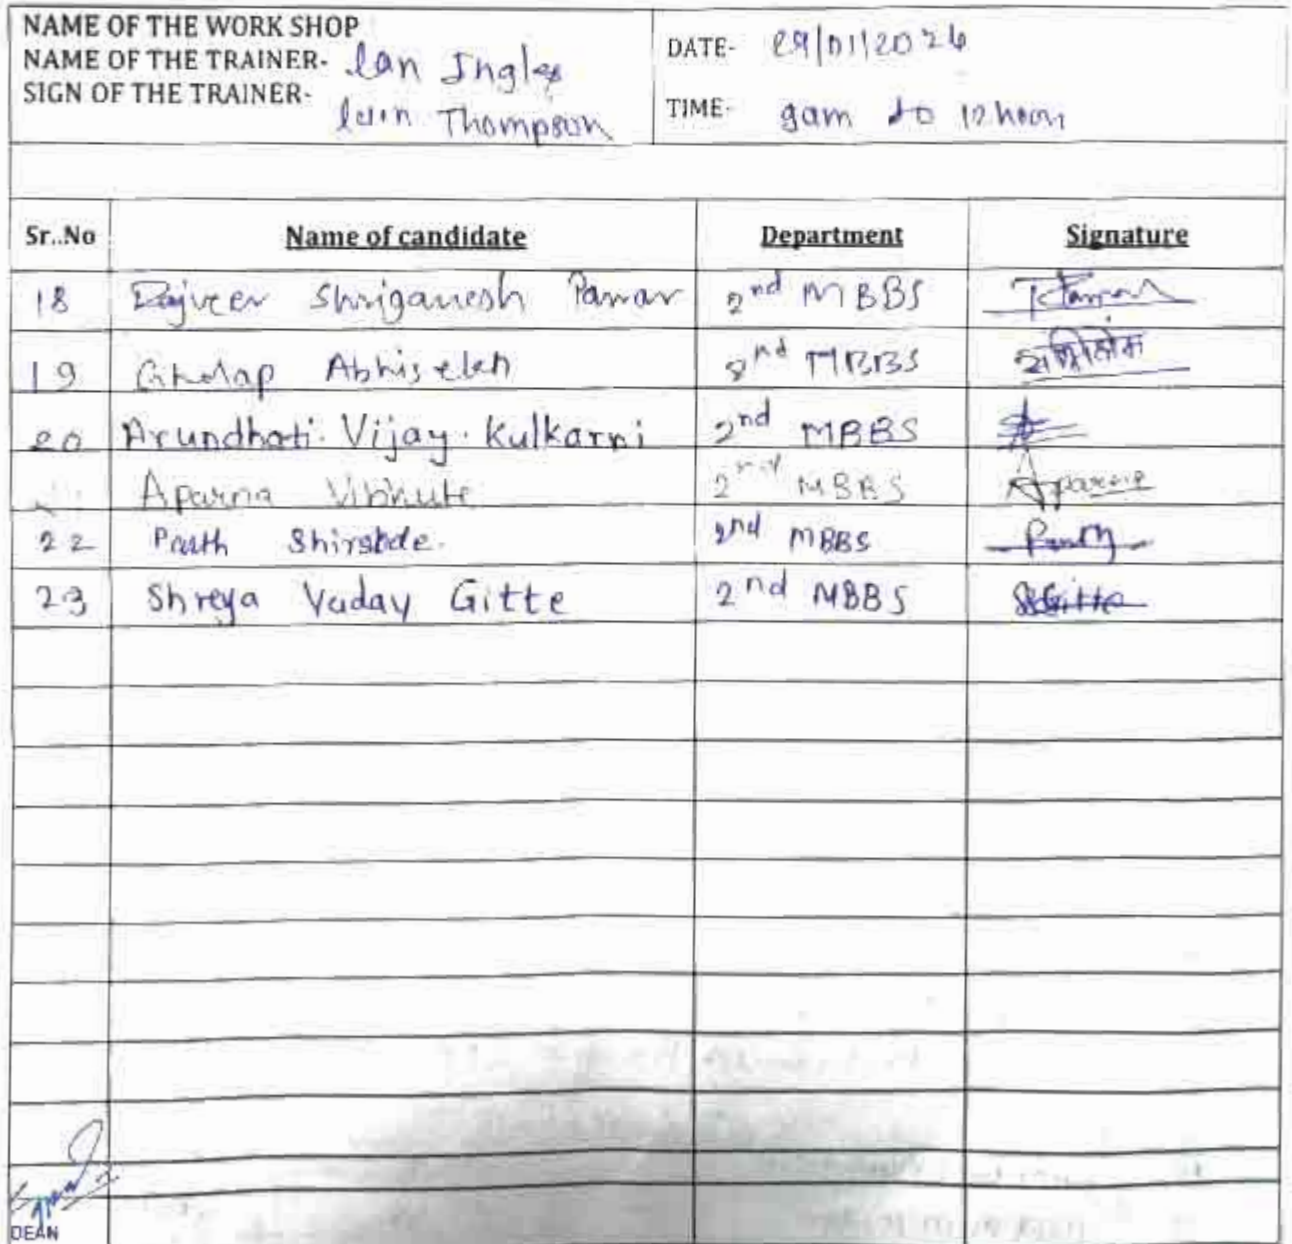 NAME OF THE WORK SHOP
NAME OF THE TRAINER- Ian Ingles
SIGN OF THE TRAINER- Iain Thompson
DATE- 29/01/2026
TIME- 9am to 12 noon
Sr..No Name of candidate Department Signature
18 Rajveer Shriganesh Pawar 2nd MBBS
19 Gholap Abhishek 2nd MBBS
20 Arundhati. Vijay. Kulkarni 2nd MBBS
Aparna Vibhute 2nd MBBS Aparna
22 Parth Shirshde. 2nd MBBS Parth
23 Shreya Vaday Gitte 2nd MBBS SGitte
DEAN